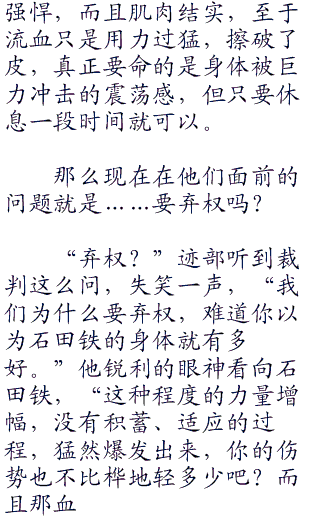 强悍，而且肌肉结实，至于
流血只是用力过猛，擦破了
皮，真正要命的是身体被巨
力冲击的震荡感，但只要休
息一段时间就可以。
那么现在在他们面前的
问题就是……要弃权吗？
“弃权？”迹部听到裁
判这么问，失笑一声，“我
们为什么要弃权，难道你以
为石田铁的身体就有多
好。”他锐利的眼神看向石
田铁，“这种程度的力量增
幅，没有积蓄、适应的过
程，猛然爆发出来，你的伤
势也不比桦地轻多少吧？而
且那血